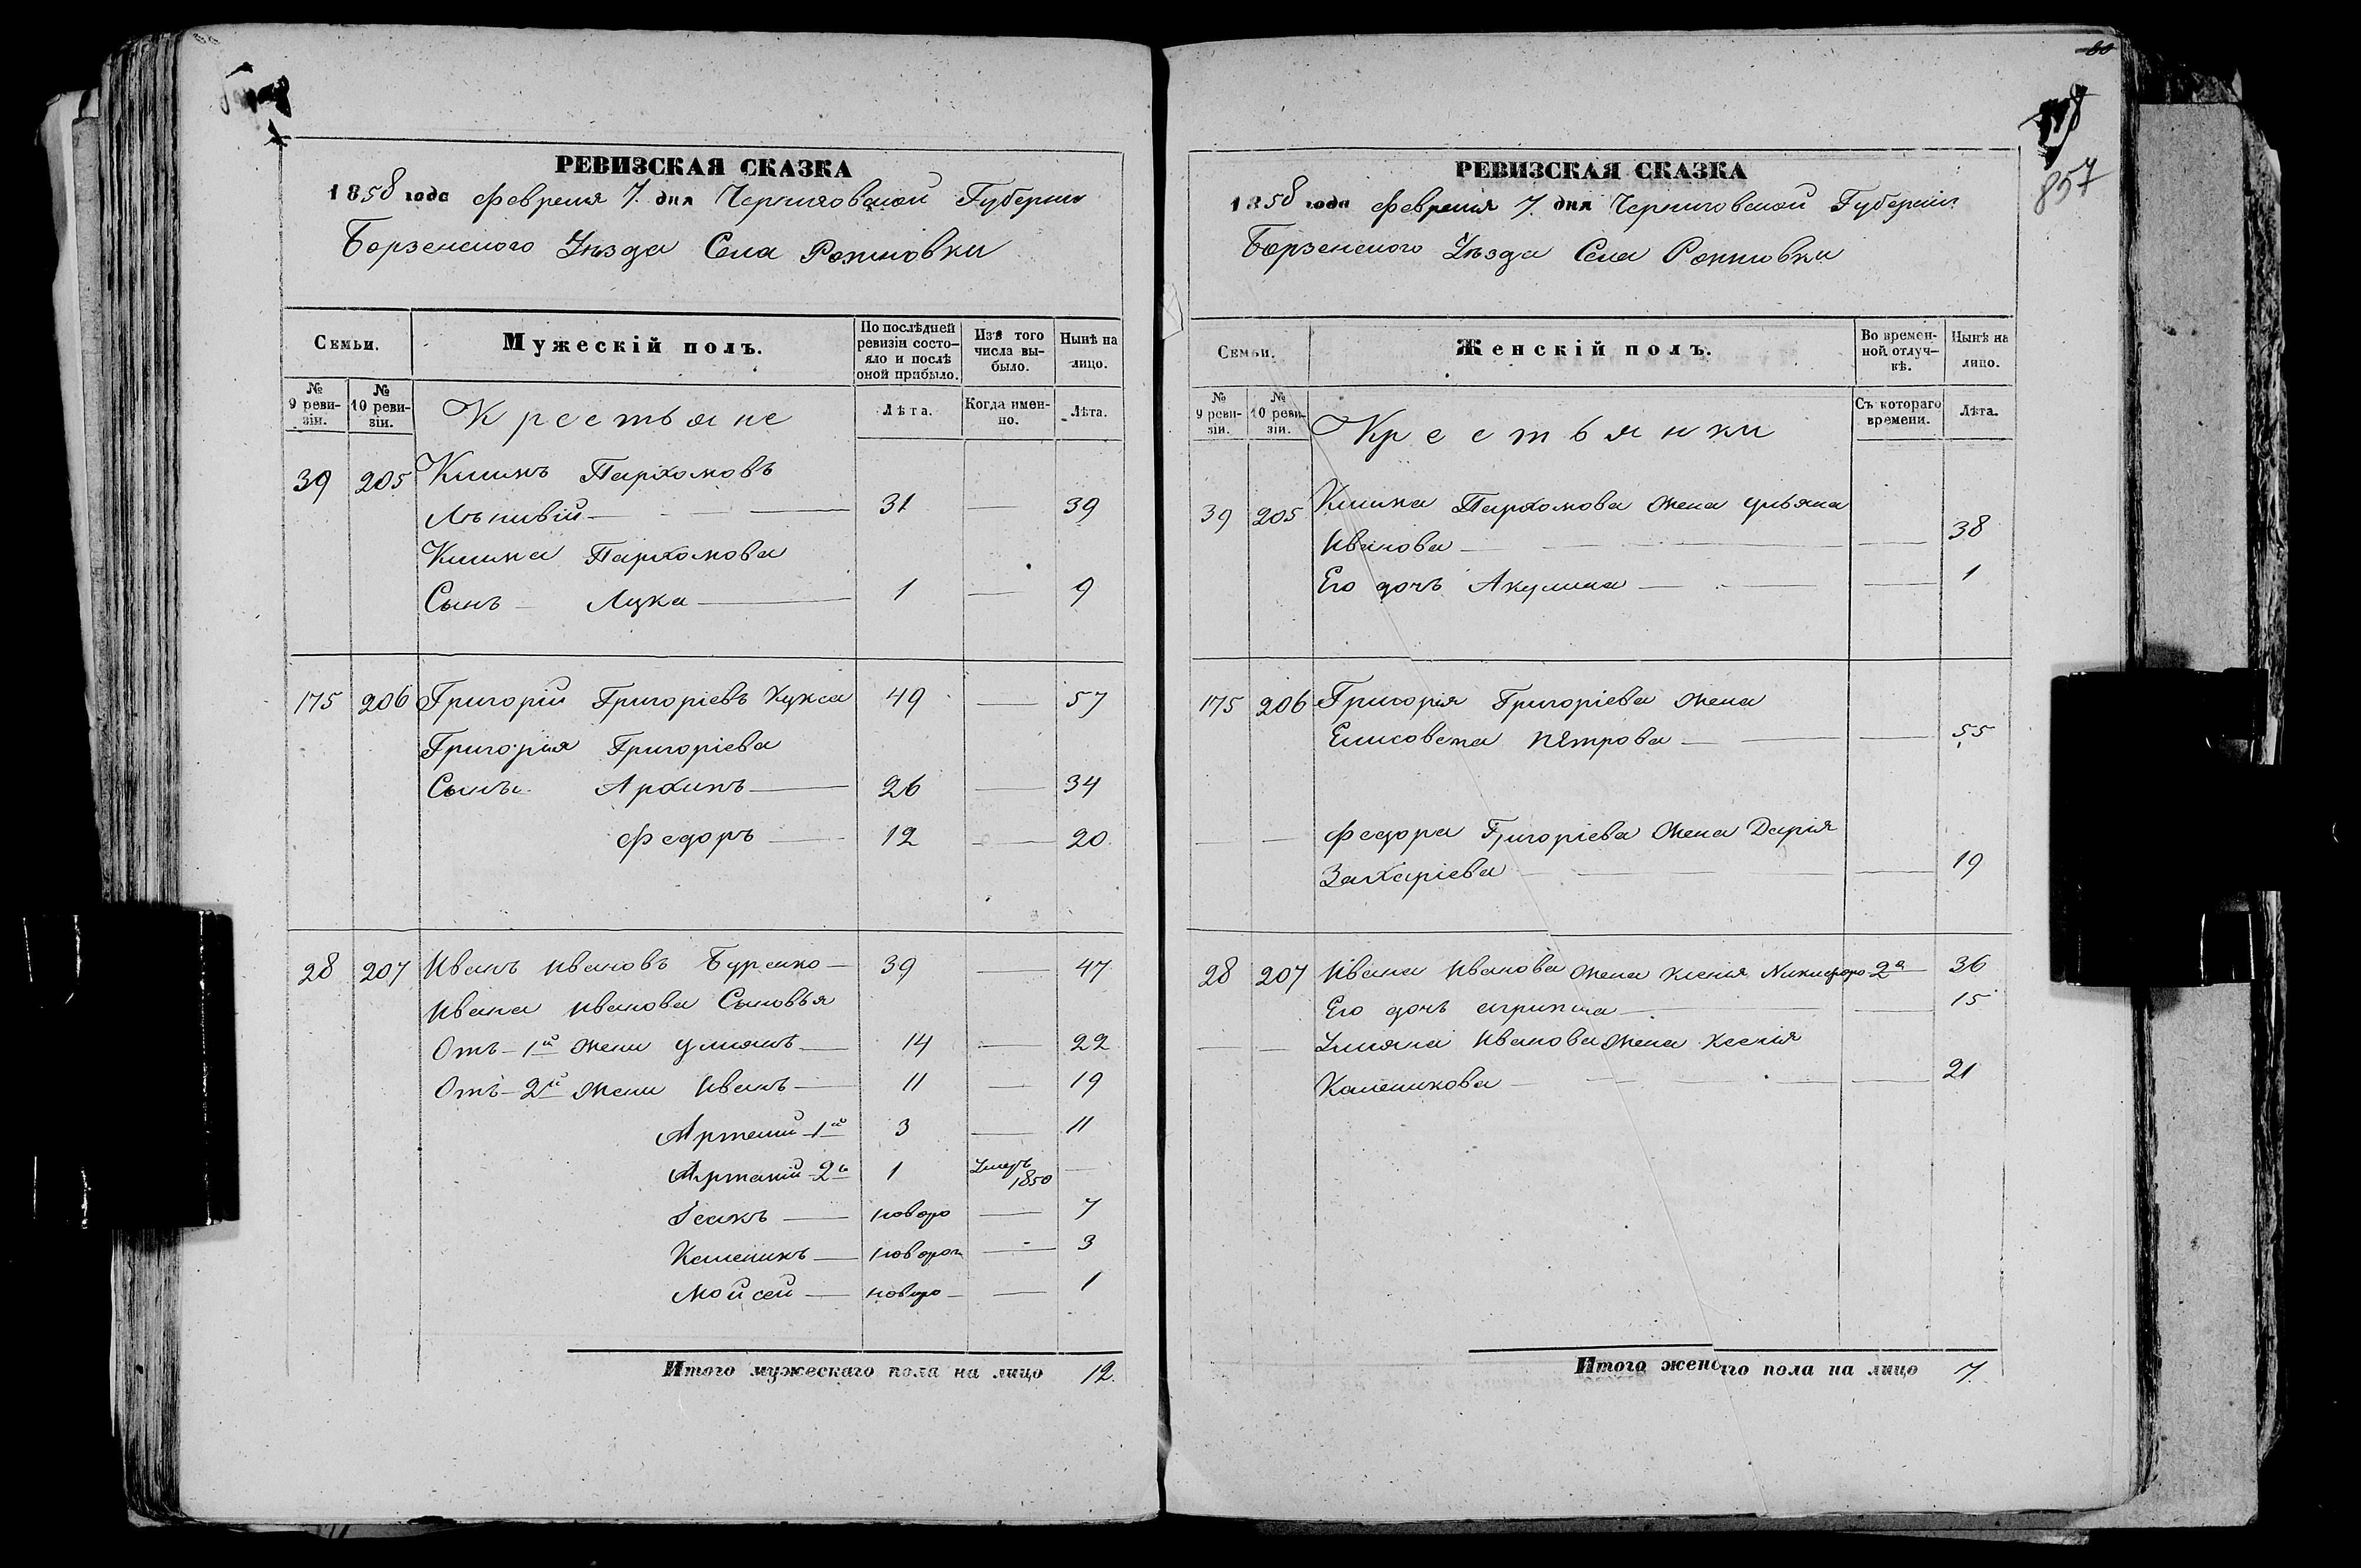 РЕВИЗСКАЯ СКАЗКА
1858 года Февраля 7. дня Черниговской Губернии
Борзенского Уѣзда Села
Семьи.
Мужескій полъ.
По послѣдней ревизіи состояло и послѣ оной прибыло.
Изъ того числа выбыло.
Нынѣ на лицо.
№ 9 ревизіи.
№ 10 ревизіи.
Крестьяне
Лѣта.
Когда именно.
Лѣта.
39 205 Климъ Пархомовъ
Лѣнивій — 31 — 39
Клима Пархомова
Сынъ Лука — 1 — 9
175 206 Григорій Григоріевъ Кукса 49 — 57
Григорія Григоріева
Сыны Архипъ — 26 — 34
Федоръ — 12 — 20
28 207 Иванъ Ивановъ Буренко — 39 — 47
Ивана Иванова Сыновья
Отъ 1й жени Улиянъ — 14 — 22
Отъ 2й жени Иванъ — 11 — 19
Артемій 1й 3 — 11
Артемій 2й 1 Умеръ 1850 —
Ісакъ — новоро — 7
Каленикъ — новорож — 3
Мойсей — новоро — 1
Итого мужескаго пола на лицо 12.
60
857
РЕВИЗСКАЯ СКАЗКА
1858 года Февраля 7. дня Черниговской Губерніи
Борзенского Уѣзда Села
Семьи.
Женскій полъ.
Во временной отлучкѣ.
Нынѣ на лицо.
№ 9 ревизіи.
№ 10 ревизіи.
Крестьянки
Съ котораго времени.
Лѣта.
39 205 Клима Пархомова жена Ульяна
Иванова — — 38
Его дочь Акулина — — 1
175 206 Григорія Григоріева жена
Елисовета Пѣтрова — — 55
— — Федора Григоріева жена Дарія
Захаріева — — 19
28 207 Ивана Иванова жена Ксенія Никифоро 2я — 36
Его дочь Агрипина — — 15
— — Улияна Иванова жена Ксенія
Каленикова — — 21
Итого женс го пола на лицо 7.